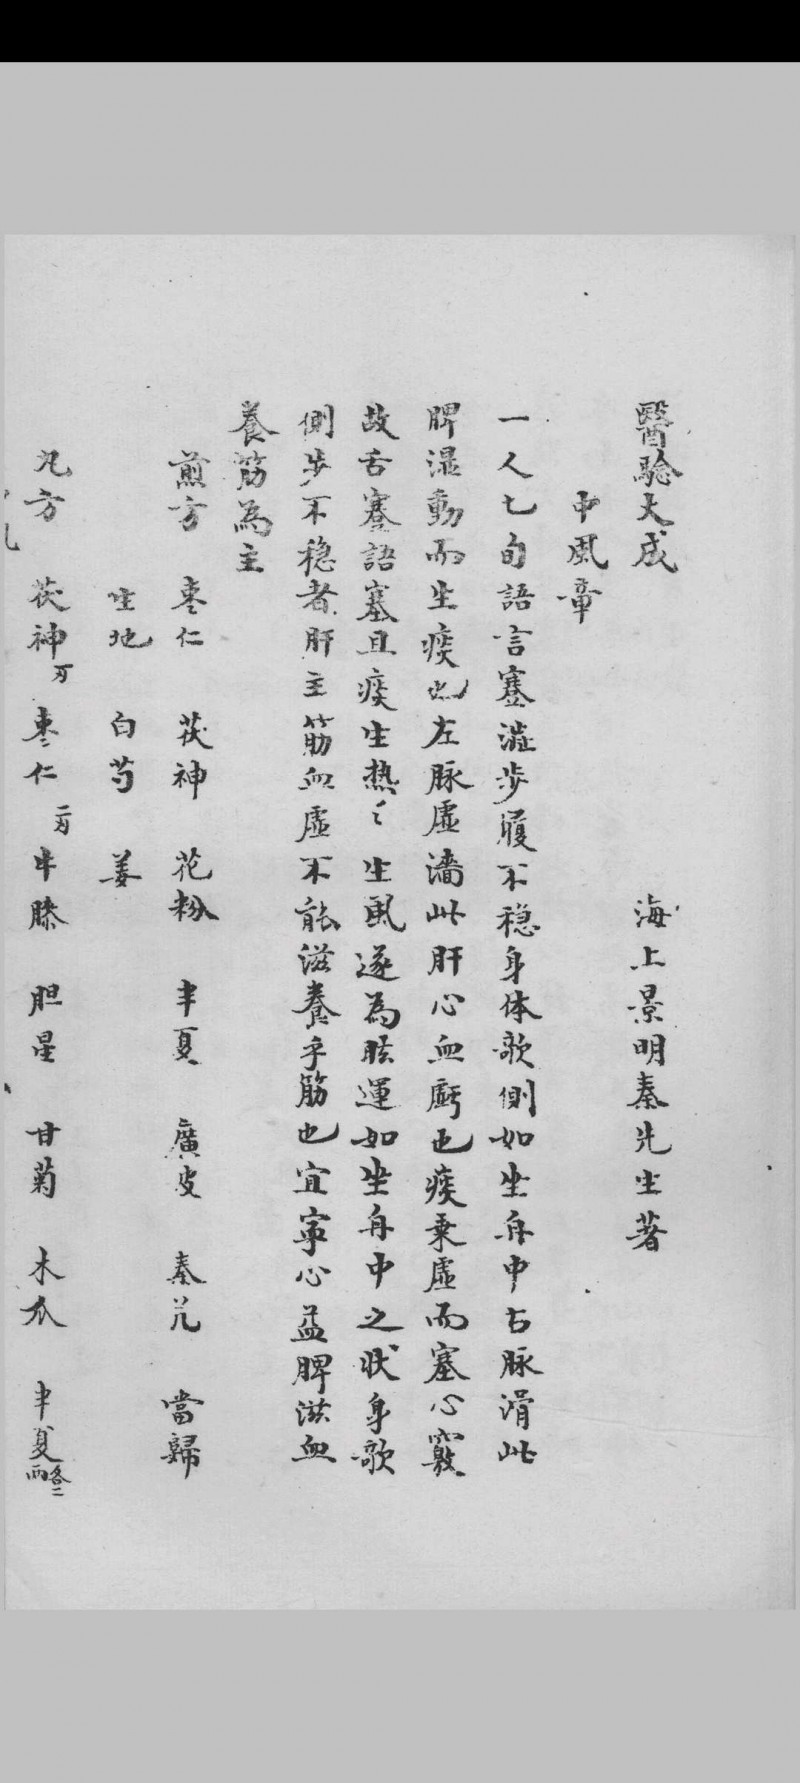 醫驗大成
海上景明秦先生著
中風章
一人七旬語言蹇澁步履不穏身体歌側如坐舟中右脉滑此
脾湿動而生痰也左脉虚濇此肝心血虧也痰乗虚而塞心竅
故舌蹇語塞且痰生热〻生風遂為眩運如坐舟中之状身歌
側步不穏者肝主筋血虚不能滋養乎筋也宜寕心益脾滋血
養筋為主
煎方 枣仁 茯神 花粉 半夏 廣皮 秦艽 當歸
生地 白芍 姜
丸方 茯神 枣仁 牛膝 胆星 甘菊 木瓜 半夏各二兩